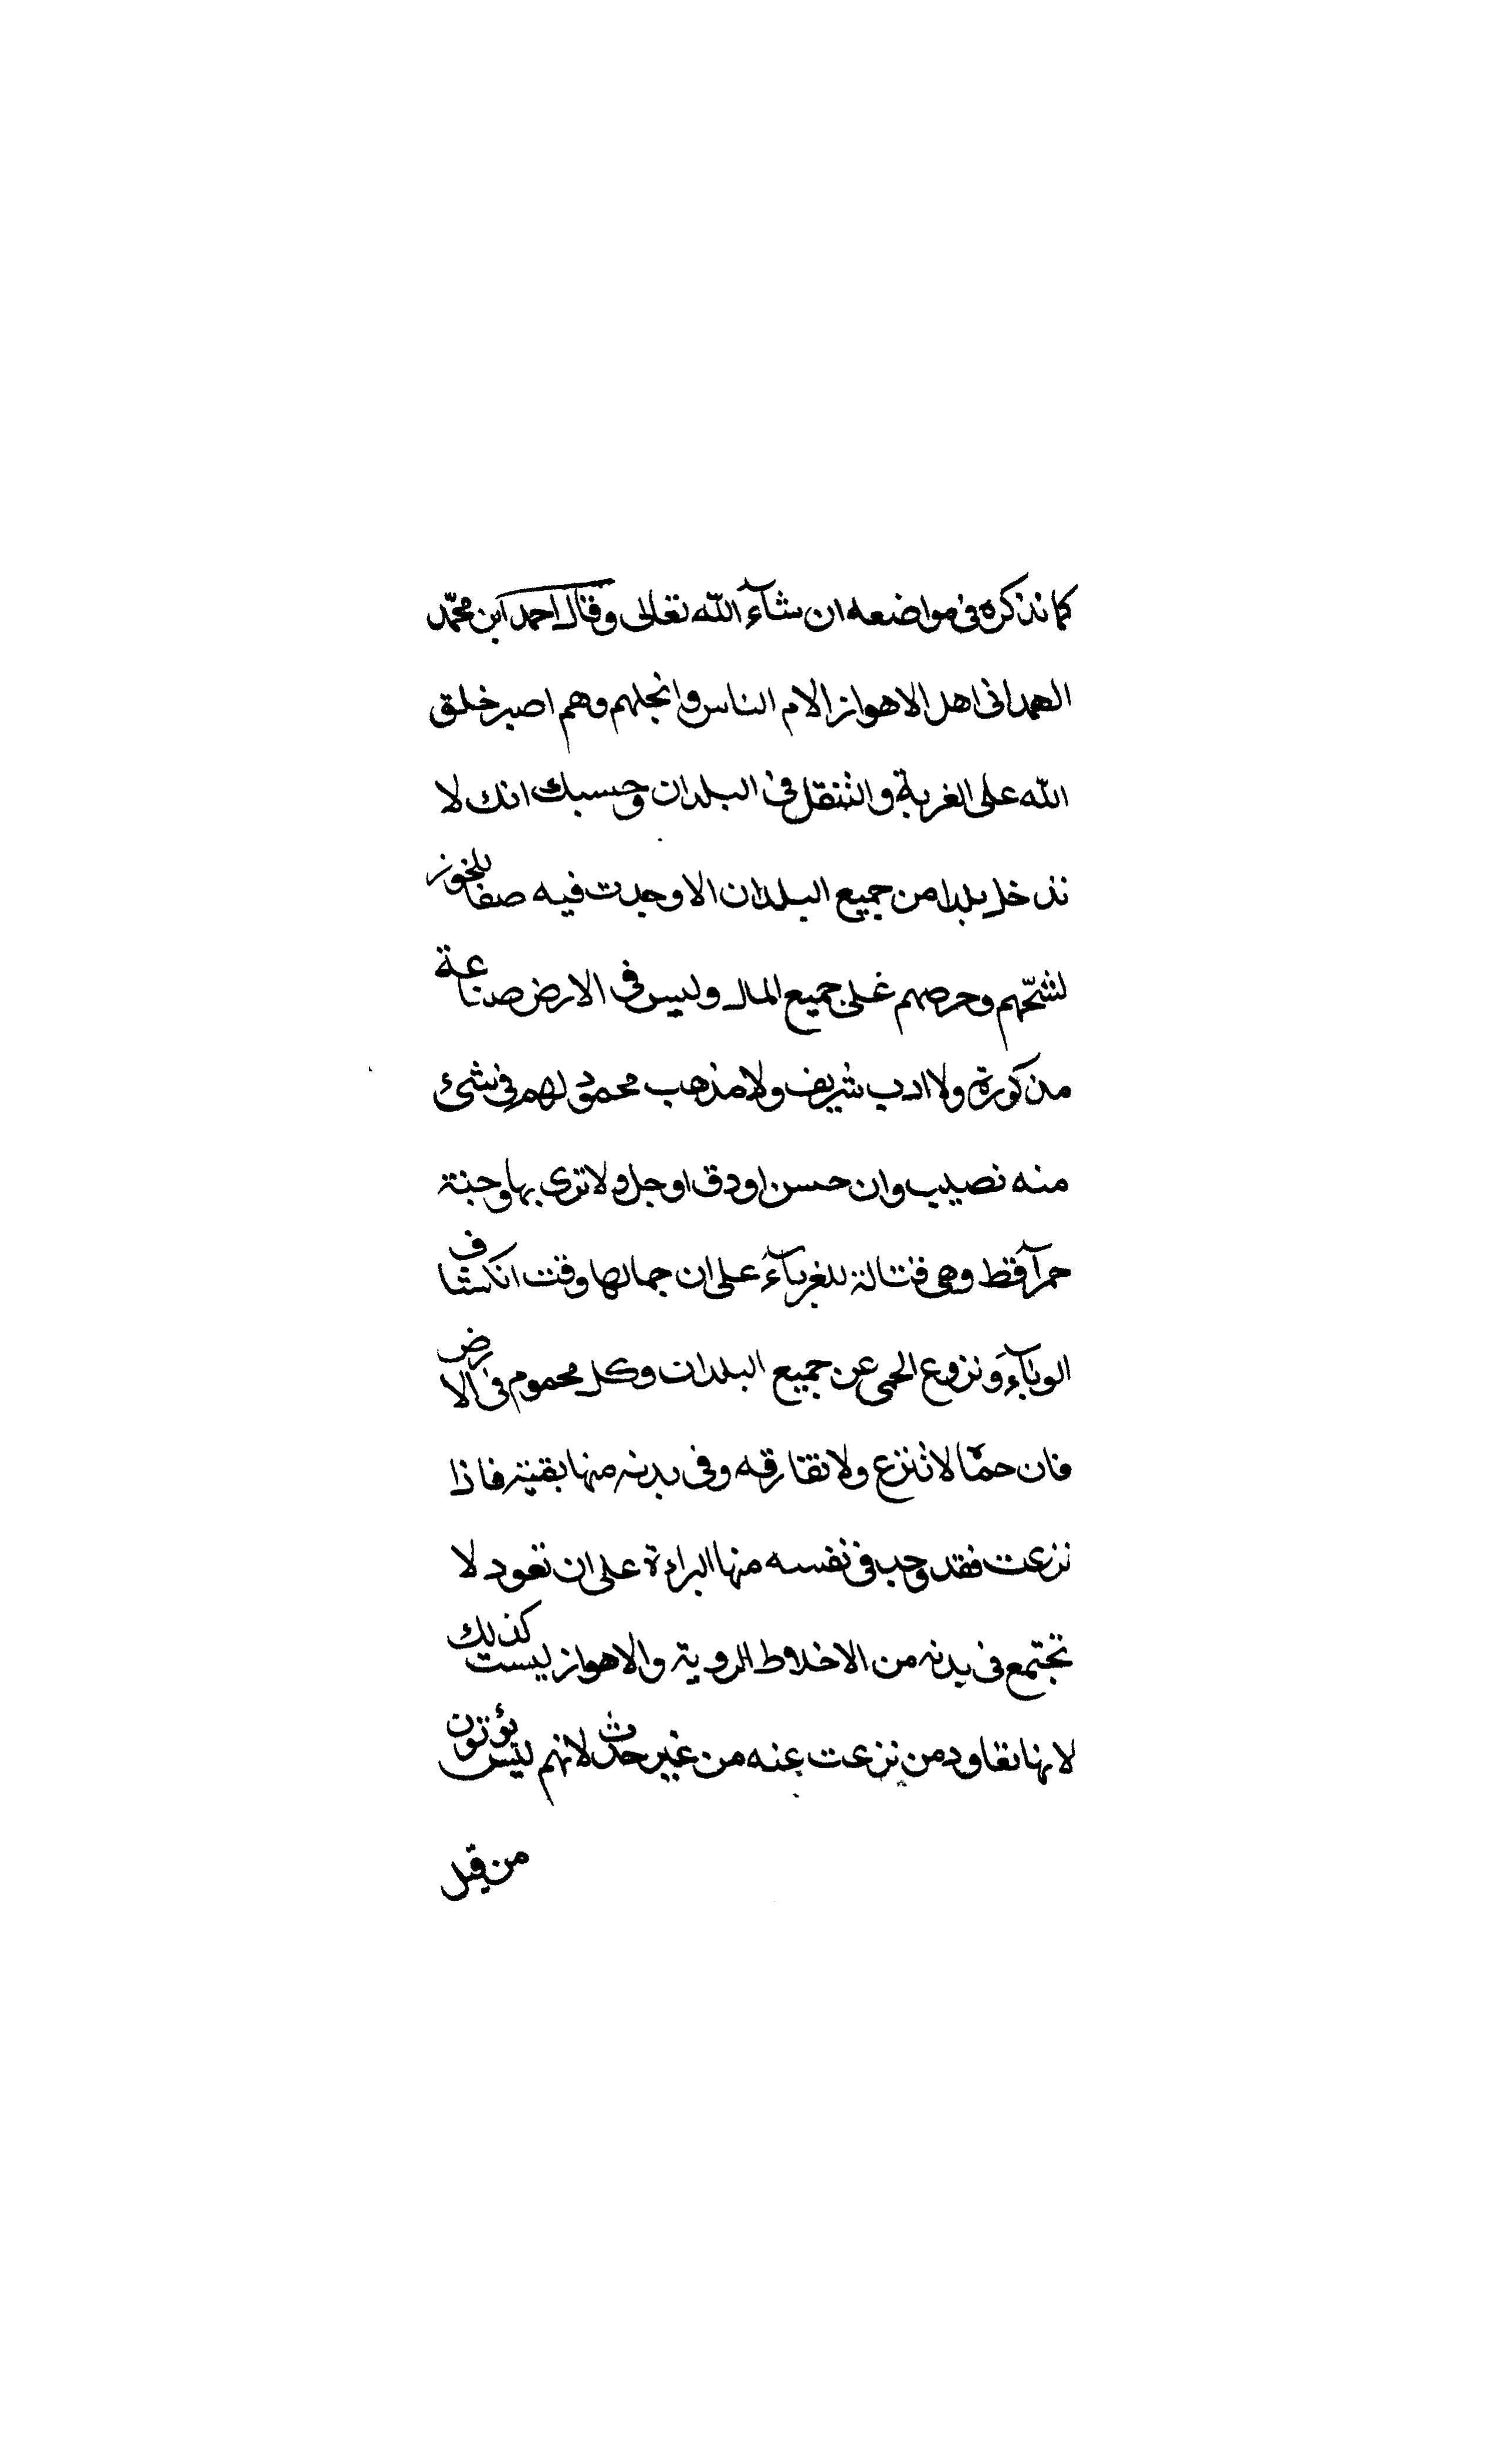 كما نذكره في مواضعه ان شآء الله تعالى وقال احمد ابن محمّد
الهمداني اهل الاهواز الام الناس وانجلهم وهم اصبر خلق
الله على الغربة والتنقل في البلدان وحسبك انك لا
تدخل بلدا من جميع البلدان الا وجدت فيه صفا للخوز
لشحّهم وحرصهم على جميع المال وليس في الارض صناعة
مذكورة ولا ادب شريف ولا مذهب محمود لهم في شئ
منه نصيب وان حسن او دق او جل ولا ترى بها وجنة
حمرآ قط وهي قتالة للغربآء على ان جمالها وقت انكشاف
الوبآء ونزوع الحمى عن جميع البلدان وكل محموم في الارض
فان حمّا لا تنزع ولا تفارقه وفي بدنه منها بقية فاذا
نزعت فقد وجب في نفسه منها البراءة على ان تعود لا
تجتمع في بدنه من الاخلاط الردية والاهواز ليست كذلك
لانها تعاود من نزعت عنه من غير حدث لانهم ليس يؤتون
من قبل